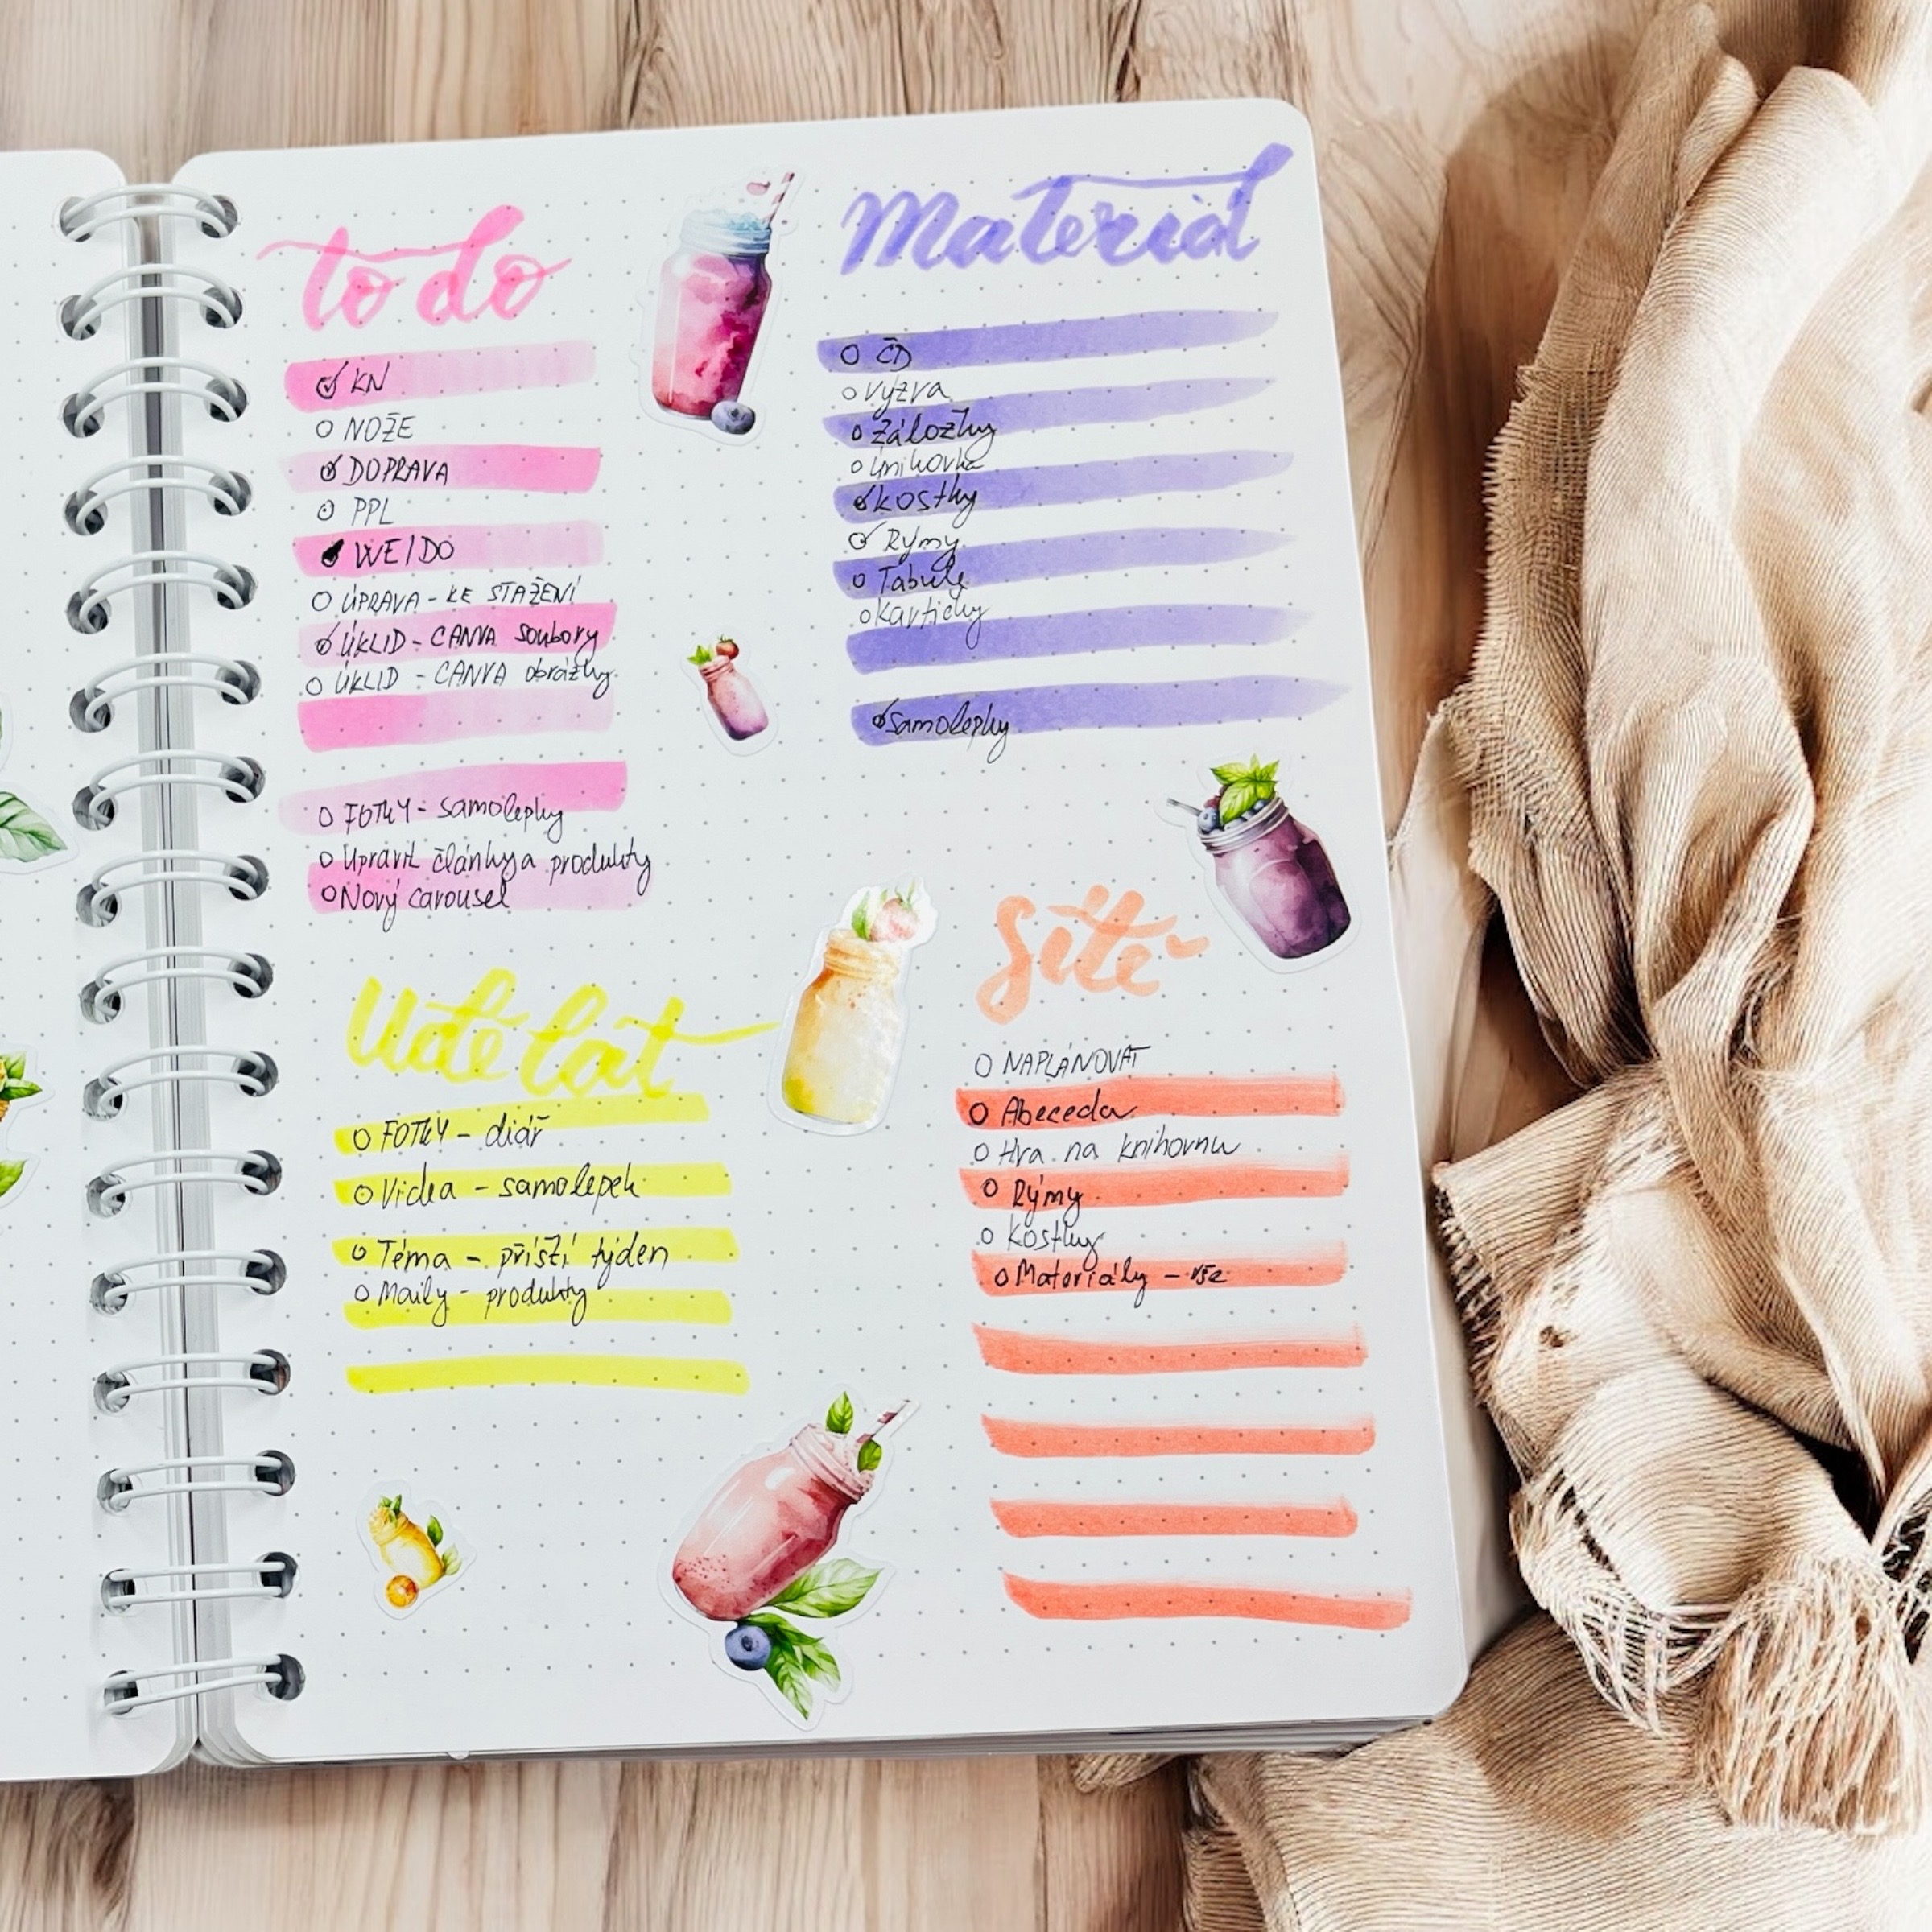 to do
KN
NOŽE
DOPRAVA
PPL
WEIDO
ÚPRAVA - KE STAŽENÍ
ÚKLID - CANVA soubory
ÚKLID - CANVA obrázky
FOTKY - samolepky
Upravit články a produkty
Nový carousel
Materiál
ČD
Výzva
Záložky
Kostky
Rýmy
Tabule
Kartičky
samolepky
Udělat
FOTKY - diář
Videa - samolepek
Téma - příští týden
Maily - produkty
Sítě
NAPLÁNOVAT
Abeceda
Hra na knihovnu
Rýmy
Kostky
Materiály - vše